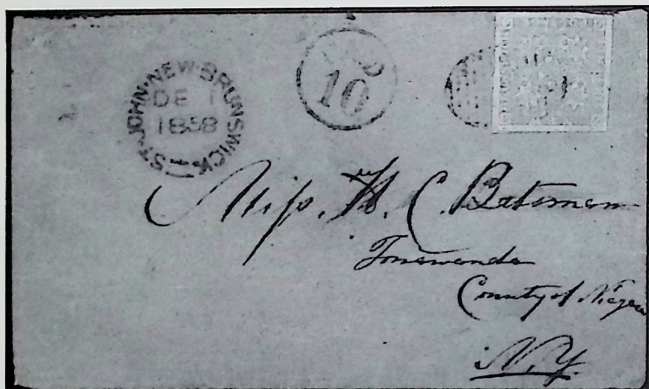 ST. JOHN. NEW-BRUNSWICK
DE 1
1858
PAID
10
Miss. H. C. Bateman
Tonawanda
County of Niagara
N.Y.